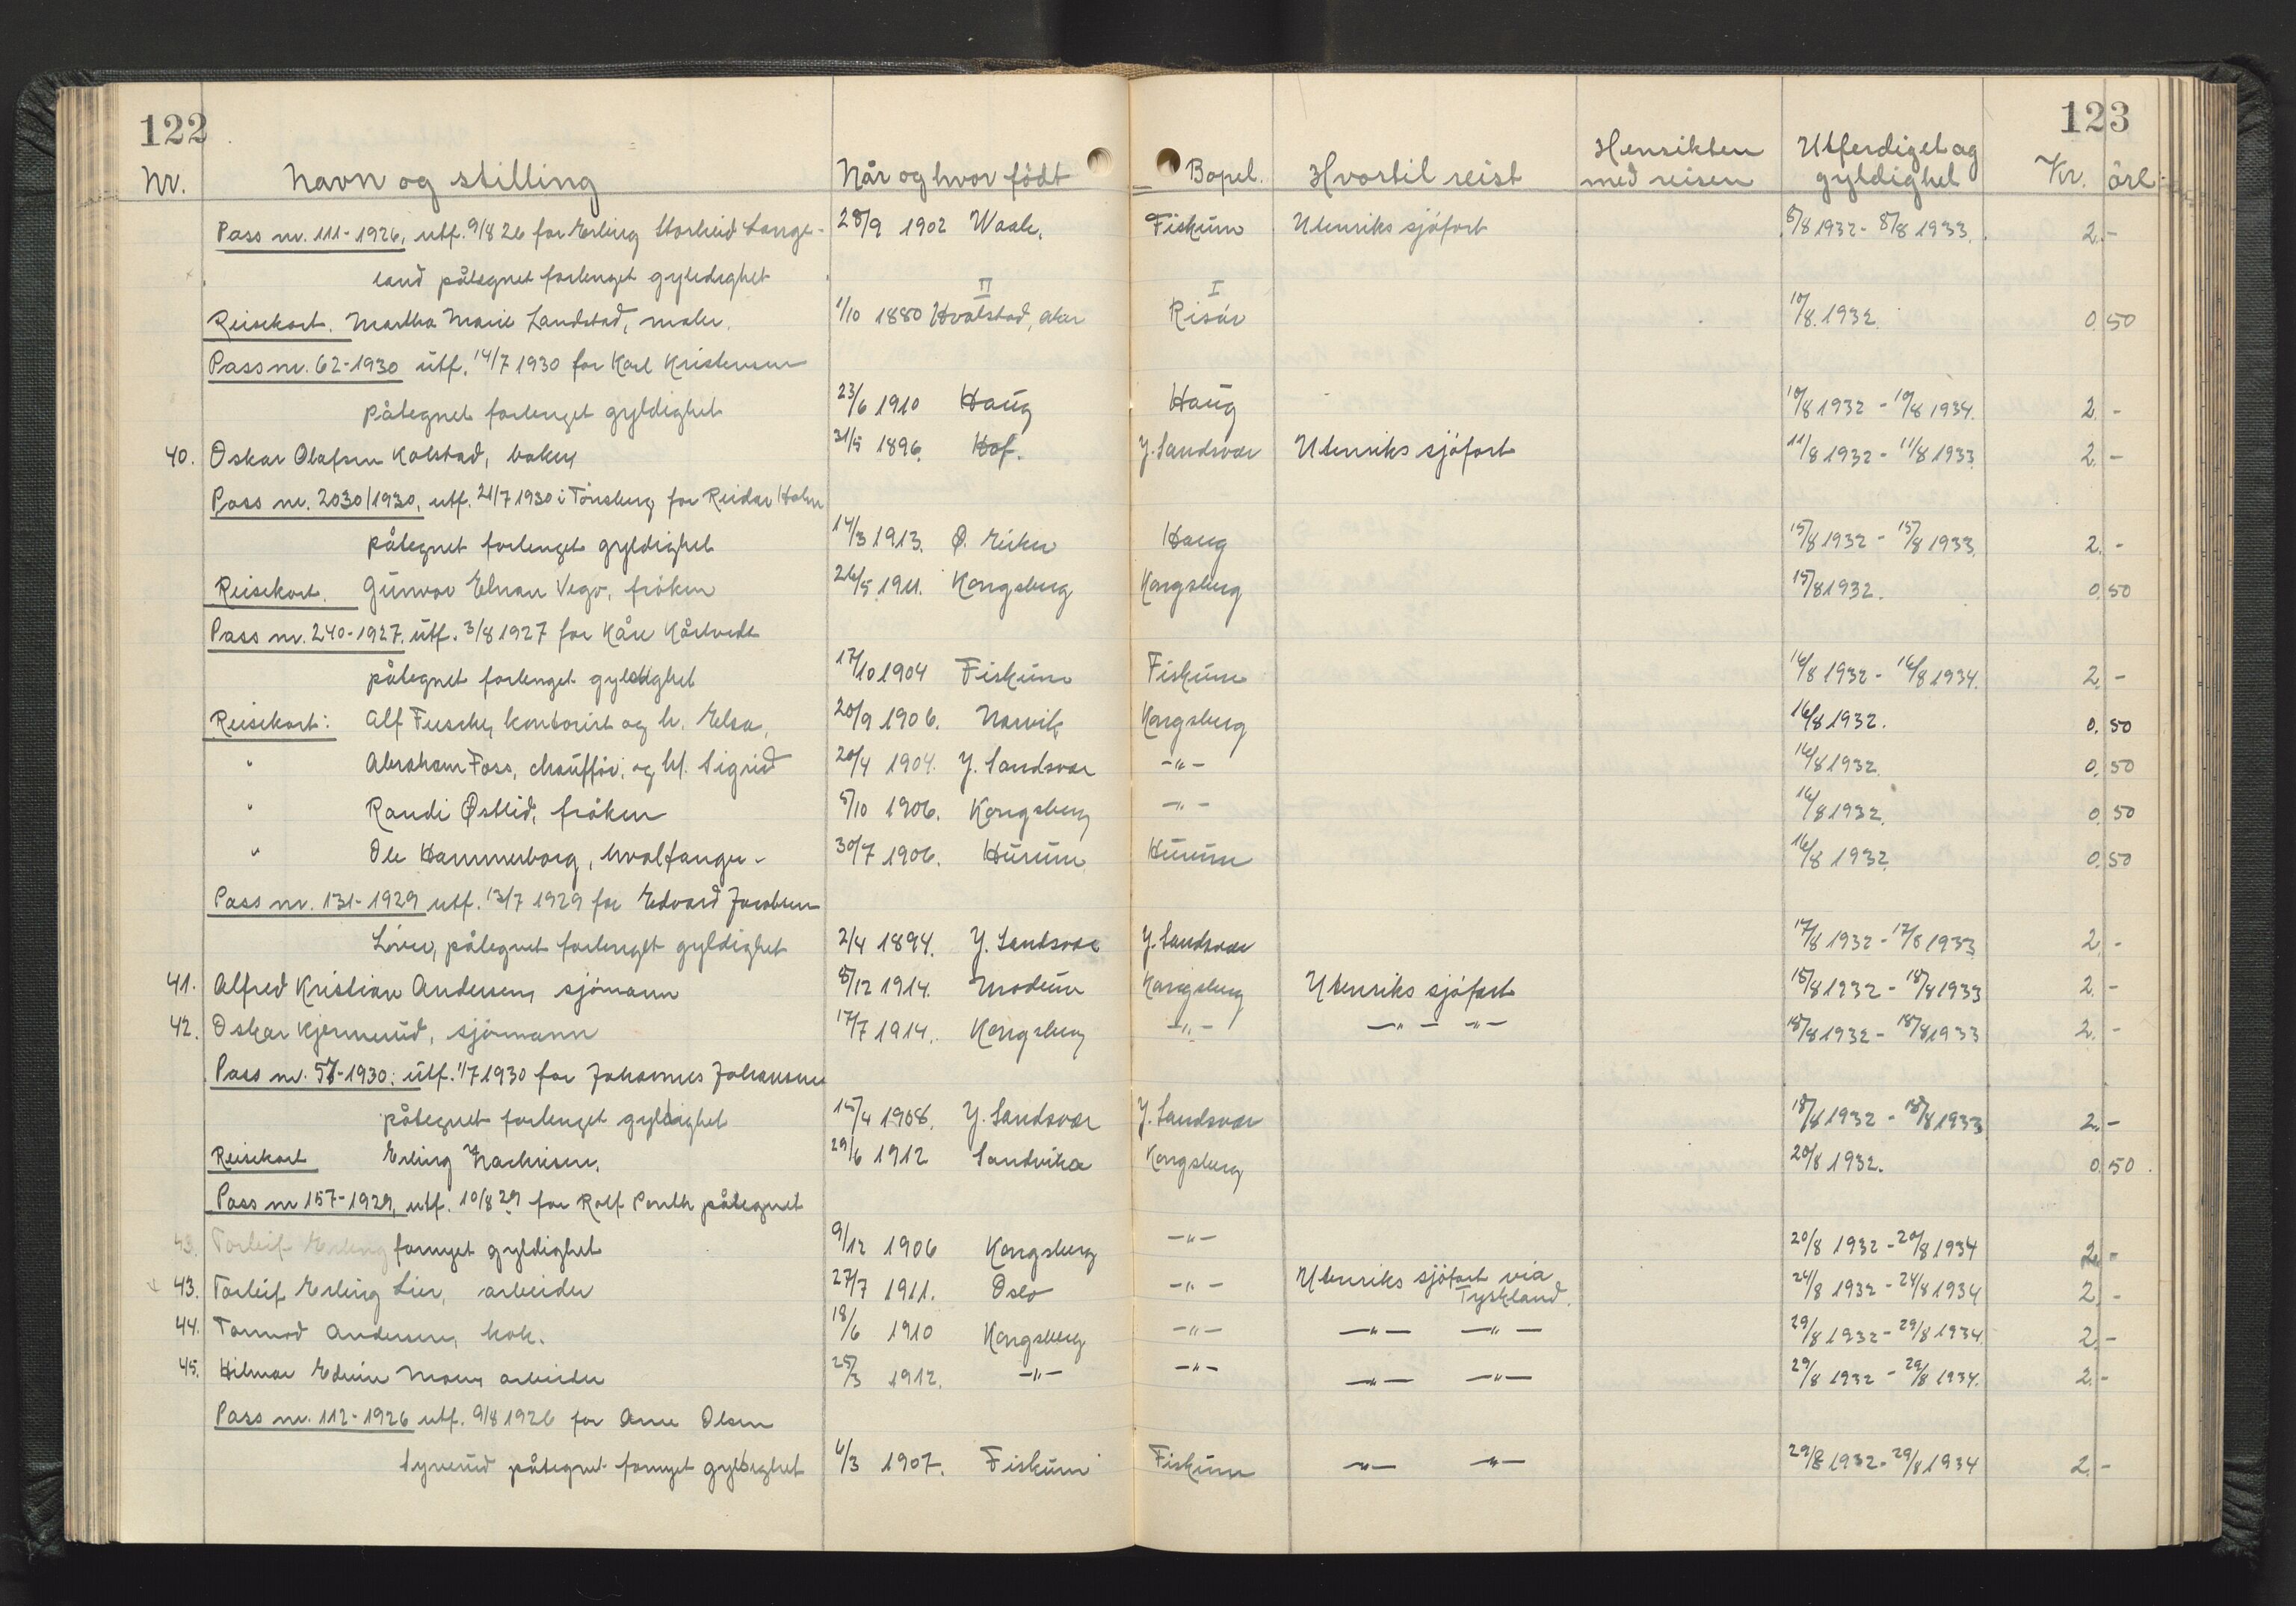 122
123
Nr. Navn og stilling Når og hvor födt Bopel. Hvortil reist Hensikten med reisen Utferdiget og gyldighet Kr. öre
Pass nr. 111-1926, utf. 9/8 26 for Erling Lange- 28/9 1902 Fiskum Utenriks sjöfart 8/8 1932 - 8/8 1933. 2.-
land påtegnet forlenget gyldighet
II I
Reisekort. Martha Marie Landstad, maler. 1/10 1880 Hvalstad, Risör 10/8. 1932. 0.50
Pass nr. 62-1930 utf. 14/7 1930 for Karl Kristensen
påtegnet forlenget gyldighet 23/6 1910 Haug Haug 10/8 1932 - 10/8 1934. 2.-
40. Oskar Olafsen Kolstad, baker 31/5 1896. Hof. Y. Sandsvær Utenriks sjöfart 11/8 1932 - 11/8 1933. 2.-
Pass nr. 2030/1930, utf. 21/7 1930 i Tönsberg for Reidar Holm
påtegnet forlenget gyldighet 14/3 1913. Ø. Eiker Haug 15/8 1932 - 15/8 1933. 2.-
Reisekort. Gunvor Elnan Vego, fröken 26/5 1911. Kongsberg Kongsberg 15/8 1932. 0.50
Pass nr. 240-1927, utf. 3/8 1927 for Kåre Kårtvedt
påtegnet forlenget gyldighet 17/10 1904 Fiskum Fiskum 16/8 1932 - 16/8 1934. 2.-
Reisekort: Alf kontorist og h. Elsa, 20/9 1906. Narvik Kongsberg 16/8 1932. 0.50
" Abraham Foss, chaufför, og h. Sigrid 20/4 1904. Y. Sandsvær -"- 16/8 1932. 0.50
" Randi Østlid, fröken 5/10 1906. Kongsberg -"- 16/8 1932. 0.50
" Ole Hammerborg, hvalfanger- 30/7 1906. Hurum Hurum 16/8 1932. 0.50
Pass nr. 131-1929 utf. 13/7 1929 for Edvard Jacobsen
Löver, påtegnet forlenget gyldighet 2/4 1894. Y. Sandsvær Y. Sandsvær 17/8 1932 - 17/8 1933. 2.-
41. Alfred Kristian Andersen, sjömann 8/12 1914. Modum Kongsberg Utenriks sjöfart 18/8 1932 - 18/8 1933 2.-
42. Oskar Kjernerud, sjömann 17/7 1914. Kongsberg -"- -"- -"- 18/8 1932 - 18/8 1933 2.-
Pass nr. 57-1930: utf. 1/7 1930 for Johannes Johansen
påtegnet forlenget gyldighet 15/4 1908. Y. Sandsvær Y. Sandsvær 18/8 1932 - 18/8 1933 2.-
Reisekort Erling 29/6 1912 Sandvika Kongsberg 20/8 1932. 0.50.
Pass nr 157-1929, utf. 10/8 29 for Rolf påtegnet
43. Torleif Erling fornyet gyldighet 9/12 1906 Kongsberg -"- 20/8 1932 - 20/8 1934 2.-
43. Torleif Erling Lier, arbeider 27/7 1911. Oslo -"- Utenriks sjöfart via Tyskland. 24/8 1932 - 24/8 1934 2.-
44. Tormod Andersen, kok. 18/6 1910 Kongsberg -"- -"- -"- 29/8 1932 - 29/8 1934. 2.-
45. Hilmar Edvin Moen, arbeider 25/3 1912. -"- -"- -"- -"- 29/8 1932 - 29/8 1934. 2.-
Pass nr. 112-1926 utf. 9/8 1926 for Arne Olsen
påtegnet fornyet gyldighet 6/3 1907. Fiskum Fiskum -"- -"- 29/8 1932 - 29/8 1934 2.-